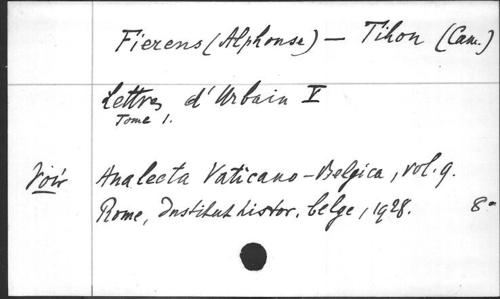 Fierens (Alphonse) — Tihon (Cam.)
Lettres d'Urbain V
Tome 1.
Voir Analecta Vaticano-Belgica, vol. 9.
Rome, Institut histor. belge, 1928. 8°